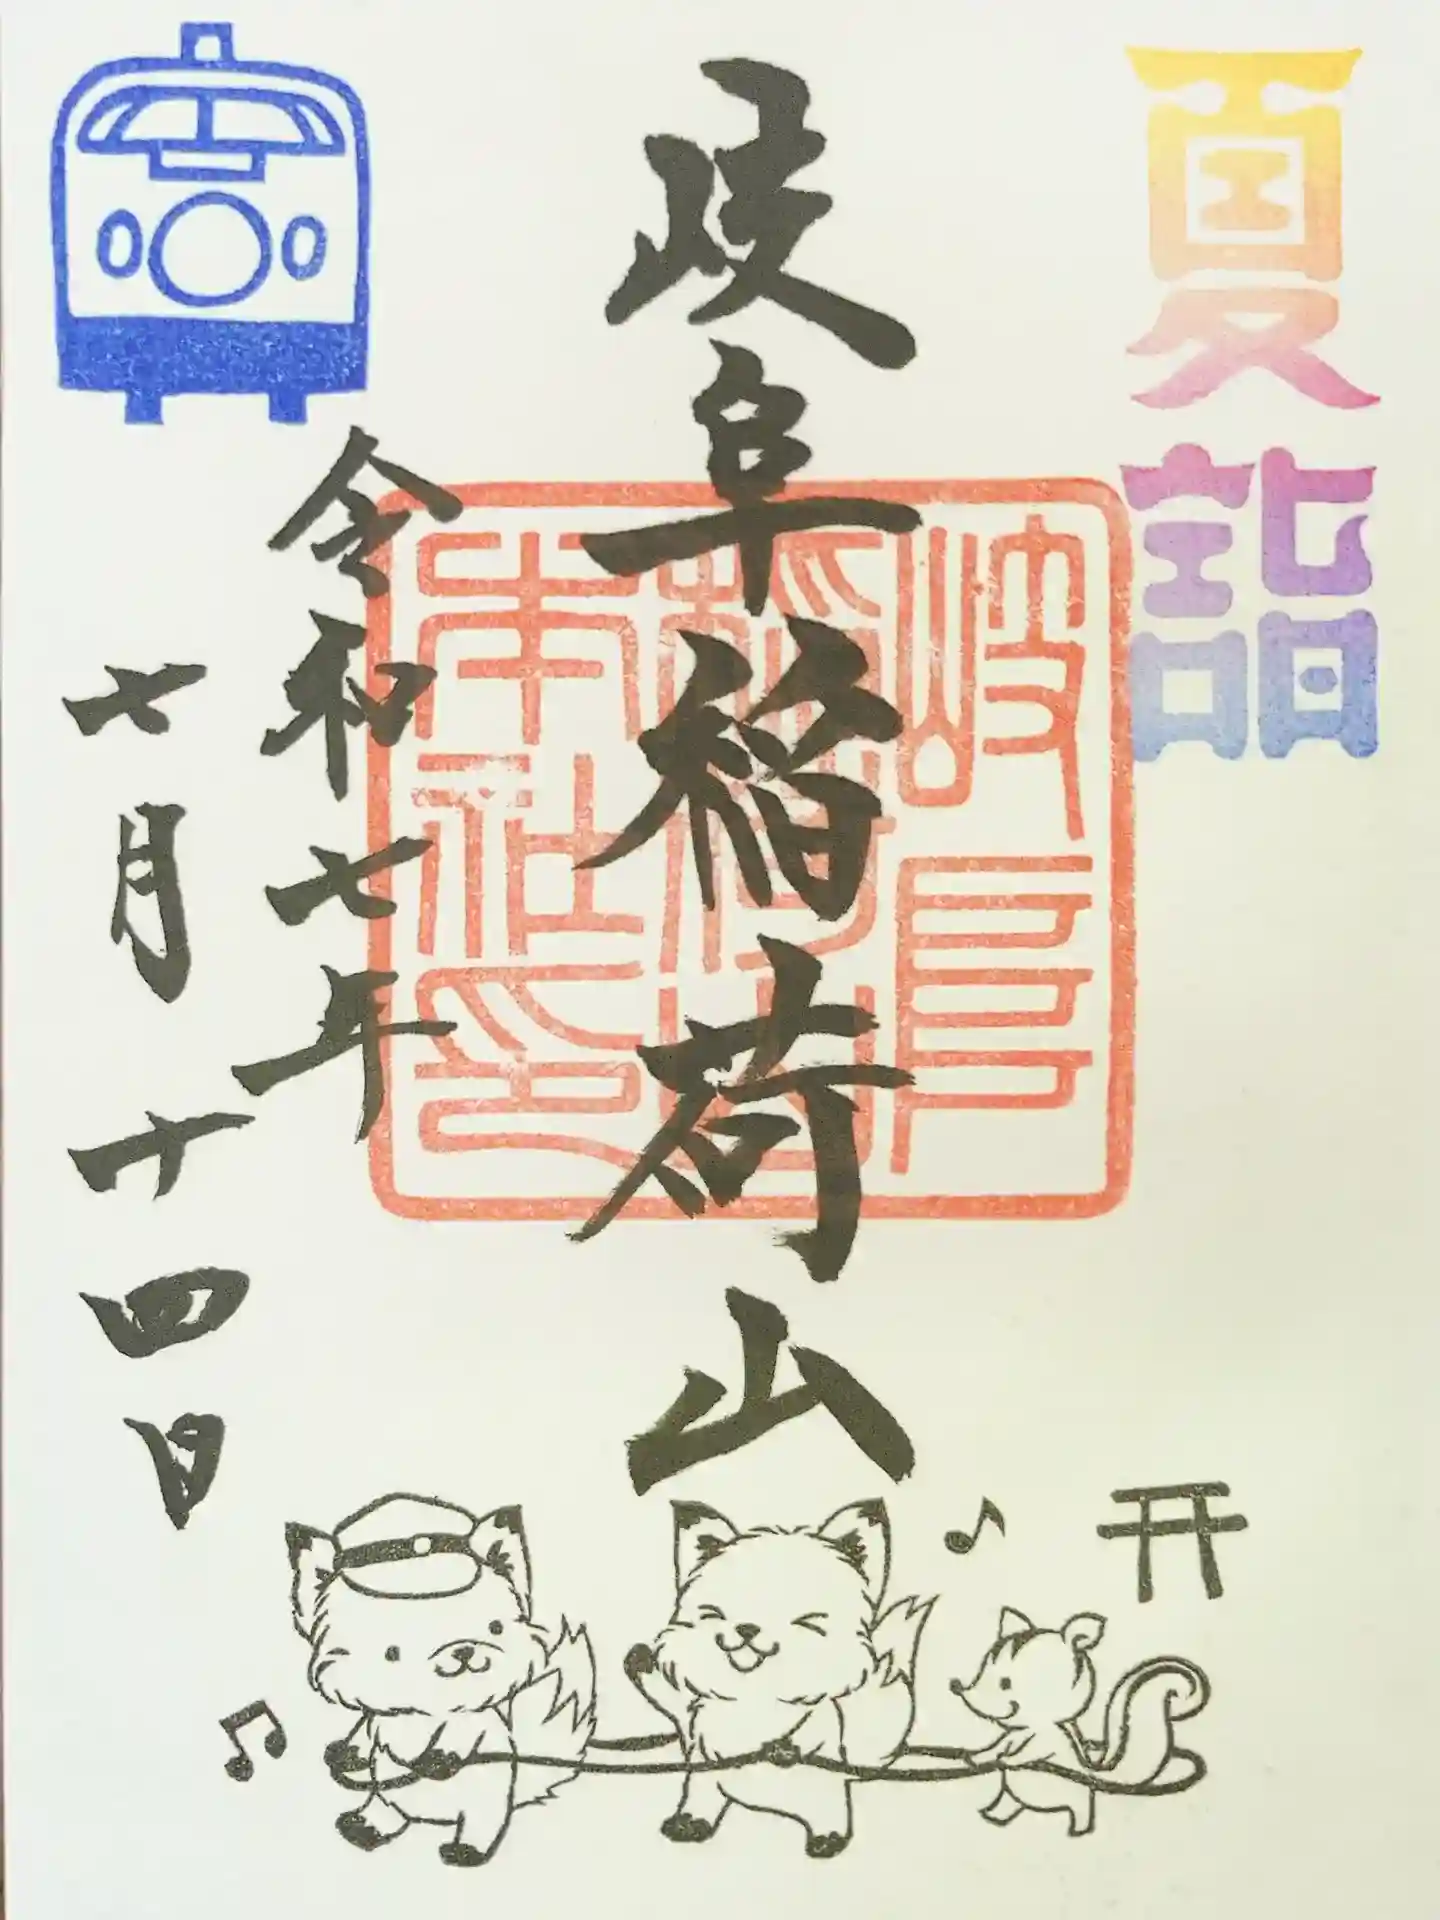 夏詣
岐阜稲荷山
岐阜
稲荷山
本社之印
令和七年
七月十四日